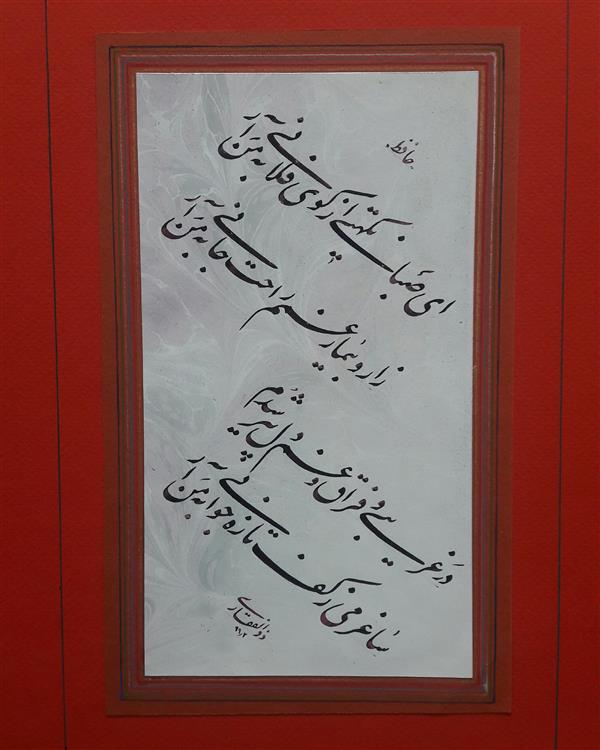 حافظ
ای صبا نکهتی از کوی فلانی به من آر
زار و بیمار غمم راحت جانی به من آر
در غریبی و فراق و غم دل پیر شدم
ساغر می ز کف تازه جوانی به من آر
ذوالفقاری